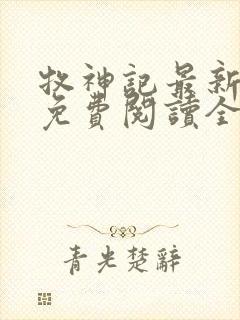 牧神記最新
免費閱讀全
青光楚辭